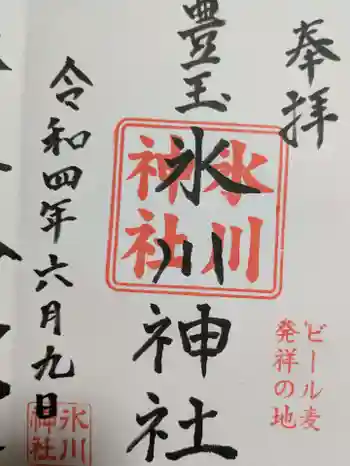 奉拝
豊玉氷川神社
氷川
神社
ビール麦
発祥の地
令和四年六月九日
氷川
神社